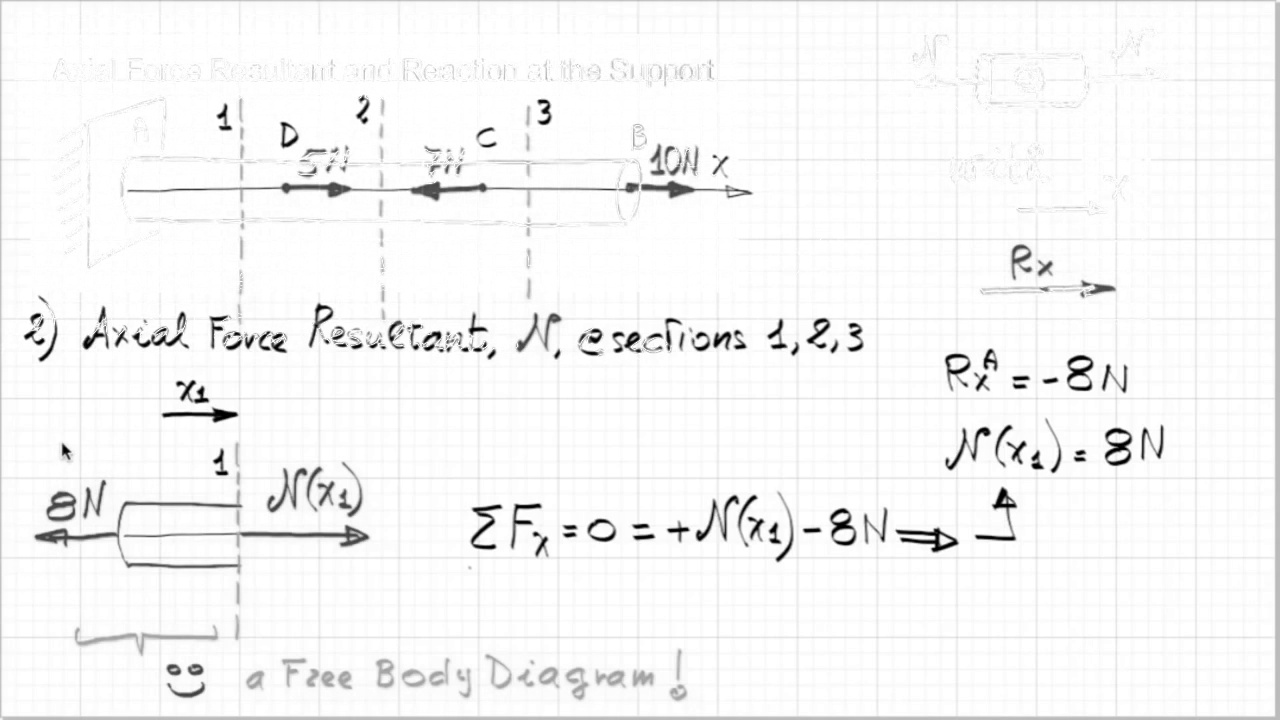 Axial Force Resultant and Reaction at the Support
N N
A 1 D 5N 2 7N C 3 B 10N x
x
Rx
2) Axial Force Resultant, N, @ sections 1, 2, 3
x1
RxA = -8N
N(x1) = 8N
8N 1 N(x1)
ΣFx = 0 = +N(x1) - 8N ⇒
a Free Body Diagram!